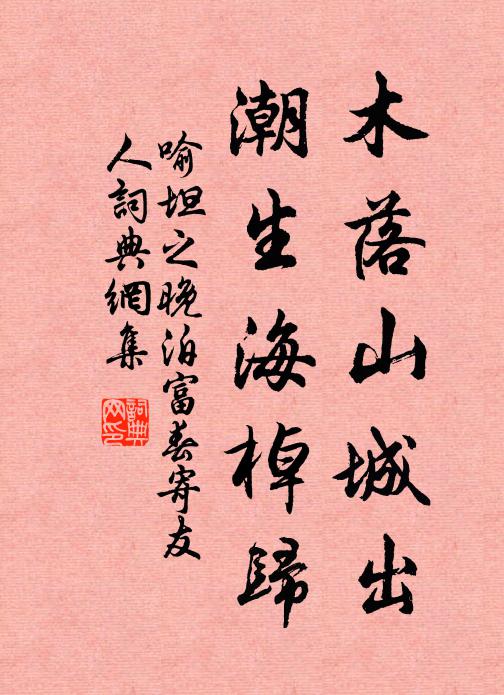 木落山城出
潮生海棹歸
喻坦之晚泊富春寄友
人詞典網集
詞典
网印